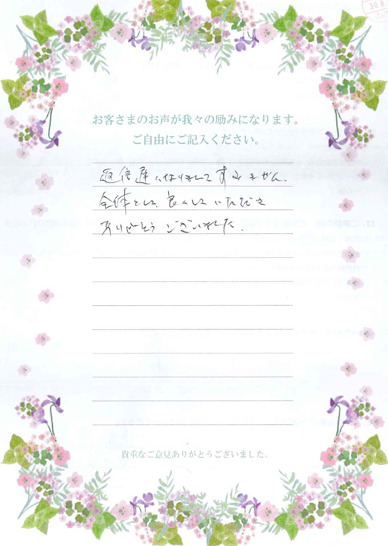 お客さまのお声が我々の励みになります。
ご自由にご記入ください。
返信遅くなりましてすみません。
全体として良くしていただき
ありがとうございました。
貴重なご意見ありがとうございました。